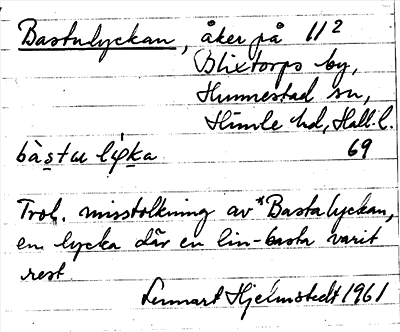 Bastulyckan, åker på 11²
Blixtorps by,
Hunnestad sn,
Himle hd, Hall. l.
bàstu lýka 69
Trol. misstolkning av *Bastalyckan,
en lycka där en lin-basta varit
rest.
Lennart Hjelmstedt 1961